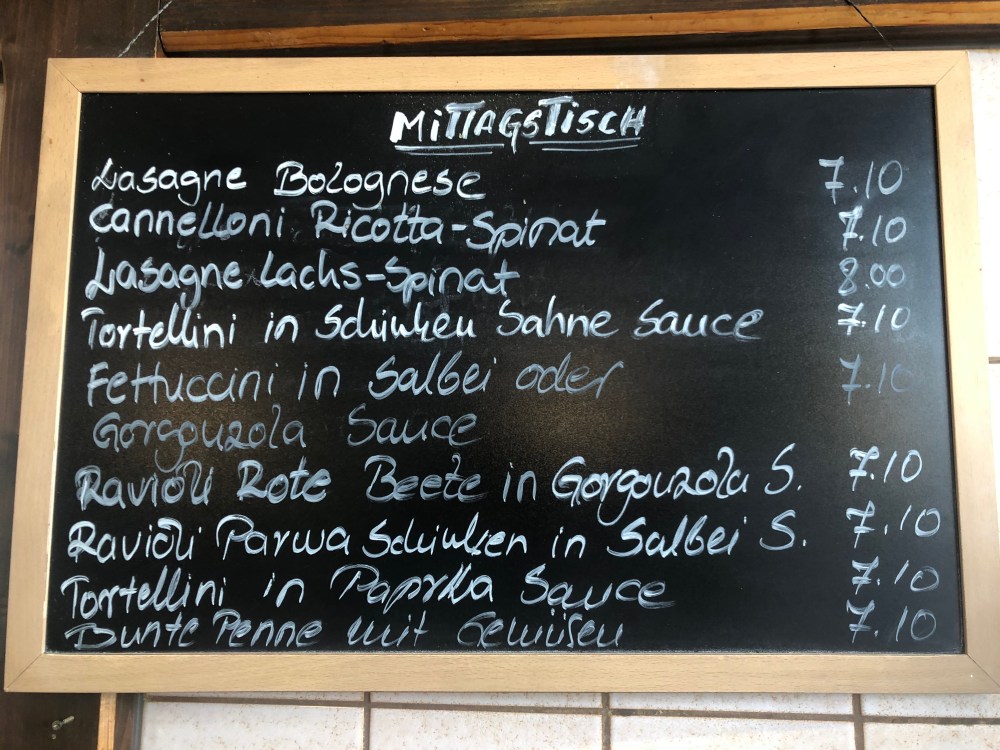 MiTTAGSTiSCH
Lasagne Bolognese 7.10
Cannelloni Ricotta-Spinat 7.10
Lasagne Lachs-Spinat 8.00
Tortellini in Schinken Sahne Sauce 7.10
Fettuccini in Salbei oder 7.10
Gorgonzola Sauce
Ravioli Rote Beete in Gorgonzola S. 7.10
Ravioli Parma Schinken in Salbei S. 7.10
Tortellini in Paprika Sauce 7.10
Bunte Penne mit Gemüsen 7.10